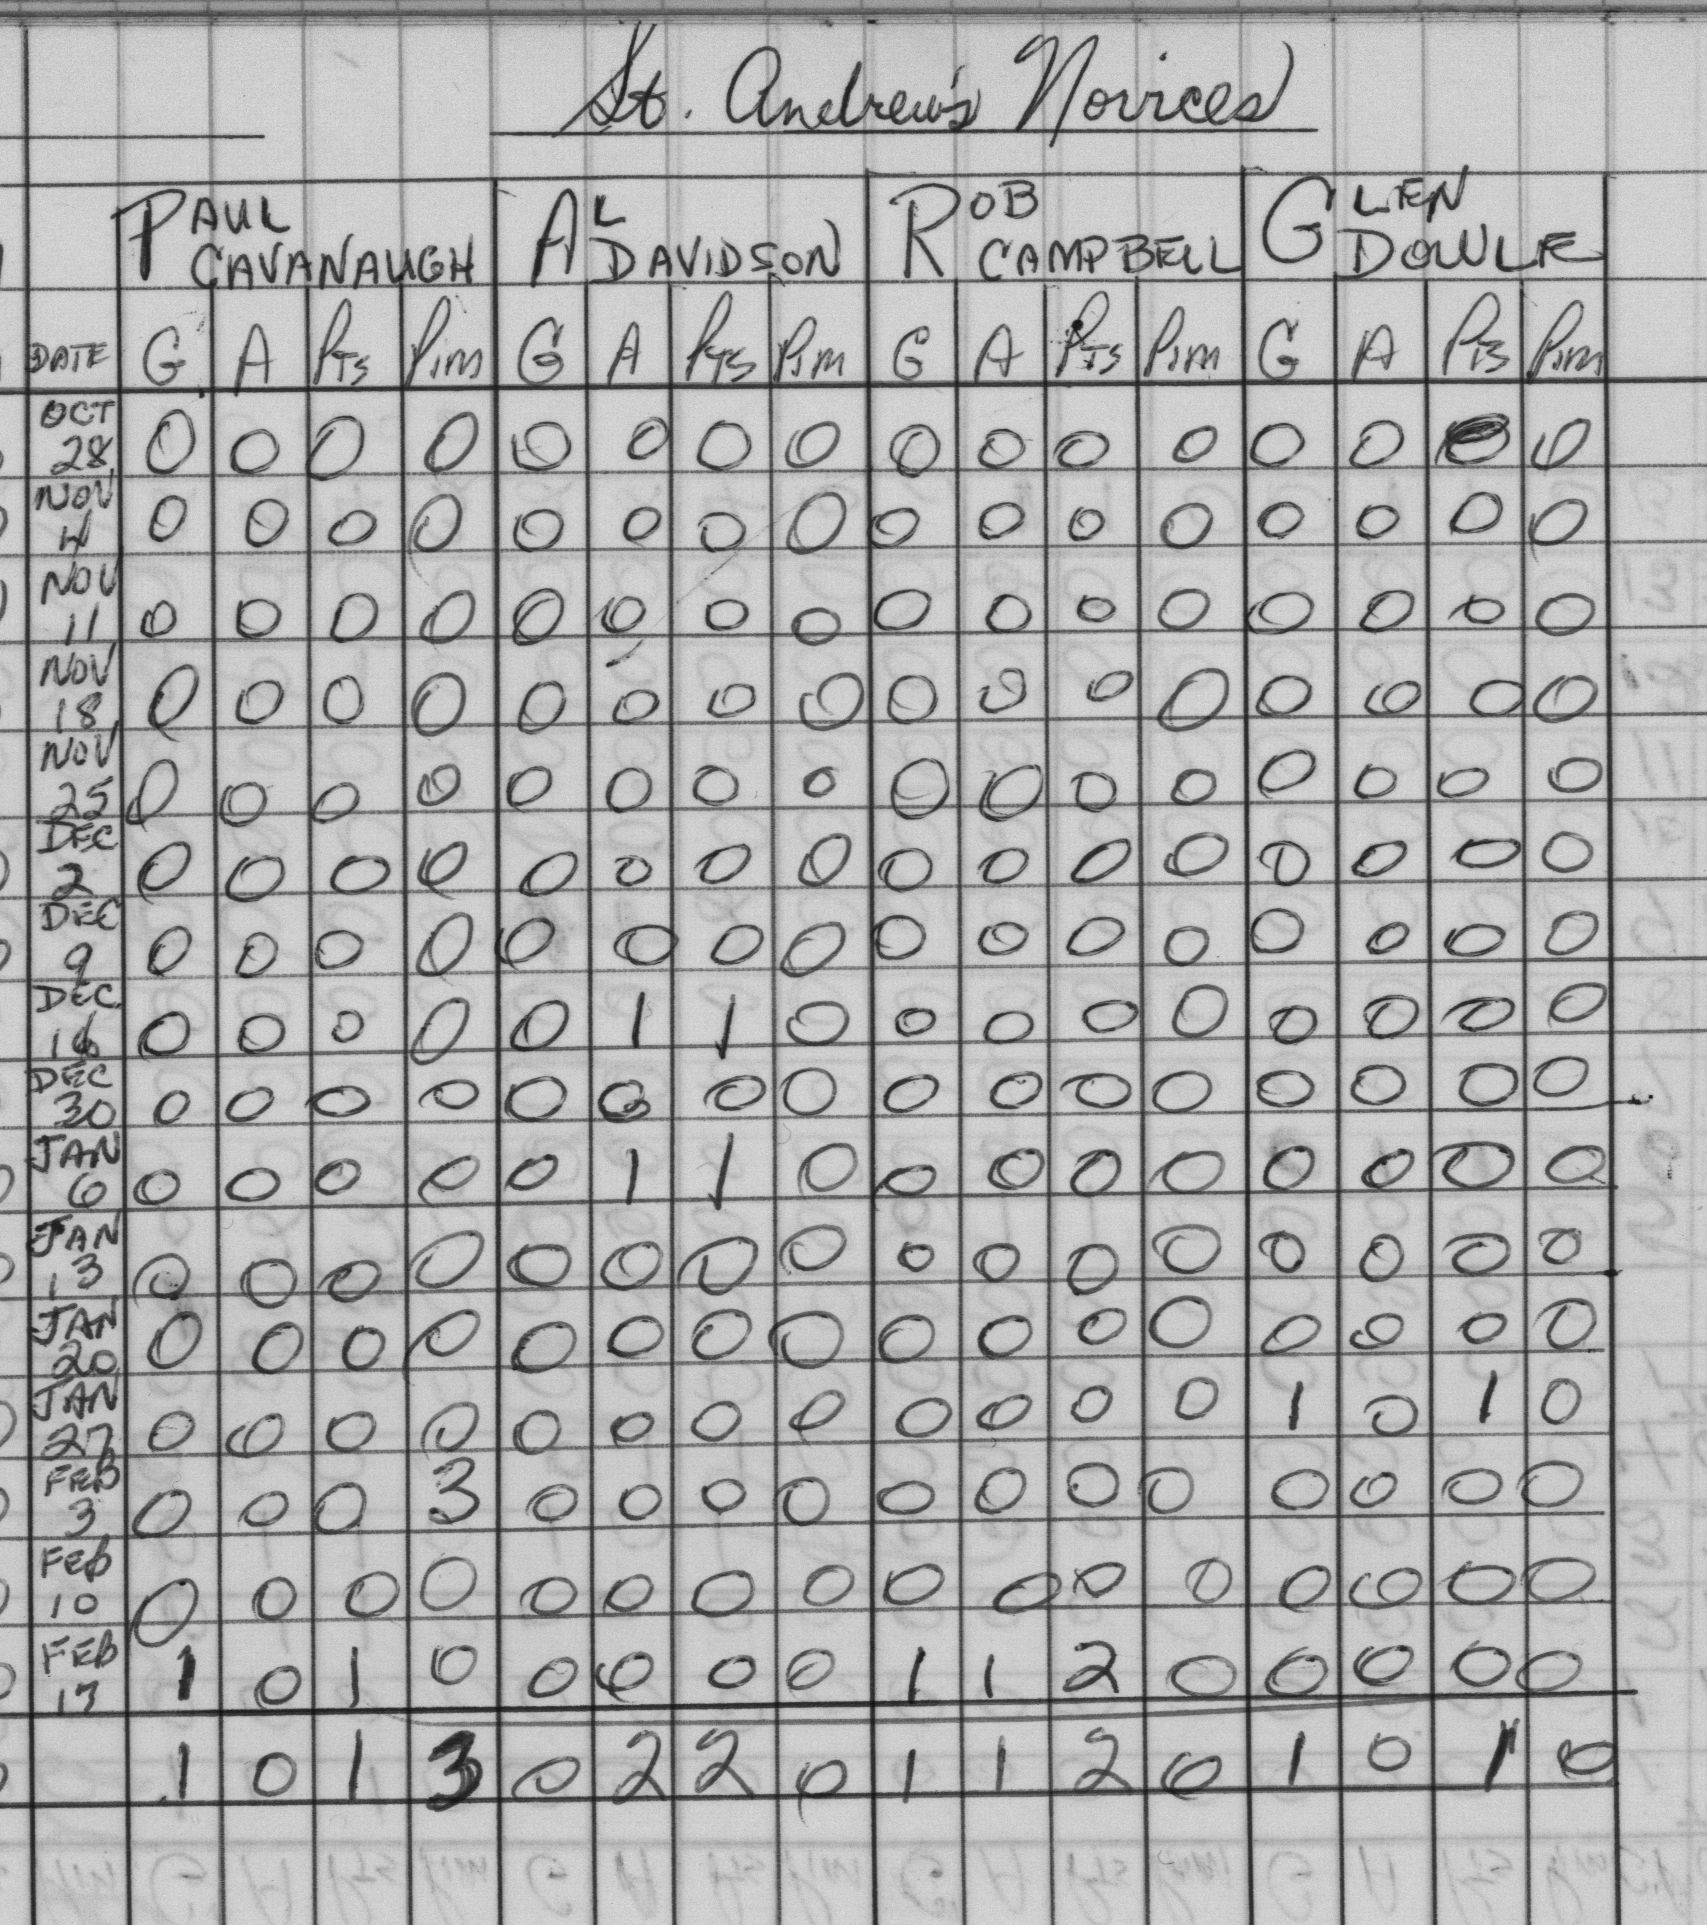 St. Andrew's Novices
PAUL CAVANAUGH AL DAVIDSON ROB CAMPBELL GLEN DOWLE
DATE G A PTS PIM G A PTS PIM G A PTS PIM G A PTS PIM
OCT 28 0 0 0 0 0 0 0 0 0 0 0 0 0 0 0 0
NOV 4 0 0 0 0 0 0 0 0 0 0 0 0 0 0 0 0
NOV 11 0 0 0 0 0 0 0 0 0 0 0 0 0 0 0 0
NOV 18 0 0 0 0 0 0 0 0 0 0 0 0 0 0 0 0
NOV 25 0 0 0 0 0 0 0 0 0 0 0 0 0 0 0 0
DEC 2 0 0 0 0 0 0 0 0 0 0 0 0 0 0 0 0
DEC 9 0 0 0 0 0 0 0 0 0 0 0 0 0 0 0 0
DEC 16 0 0 0 0 0 1 1 0 0 0 0 0 0 0 0 0
DEC 30 0 0 0 0 0 0 0 0 0 0 0 0 0 0 0 0
JAN 6 0 0 0 0 0 1 1 0 0 0 0 0 0 0 0 0
JAN 13 0 0 0 0 0 0 0 0 0 0 0 0 0 0 0 0
JAN 20 0 0 0 0 0 0 0 0 0 0 0 0 0 0 0 0
JAN 27 0 0 0 0 0 0 0 0 0 0 0 0 1 0 1 0
FEB 3 0 0 0 3 0 0 0 0 0 0 0 0 0 0 0 0
FEB 10 0 0 0 0 0 0 0 0 0 0 0 0 0 0 0 0
FEB 17 1 0 1 0 0 0 0 0 1 1 2 0 0 0 0 0
1 0 1 3 0 2 2 0 1 1 2 0 1 0 1 0